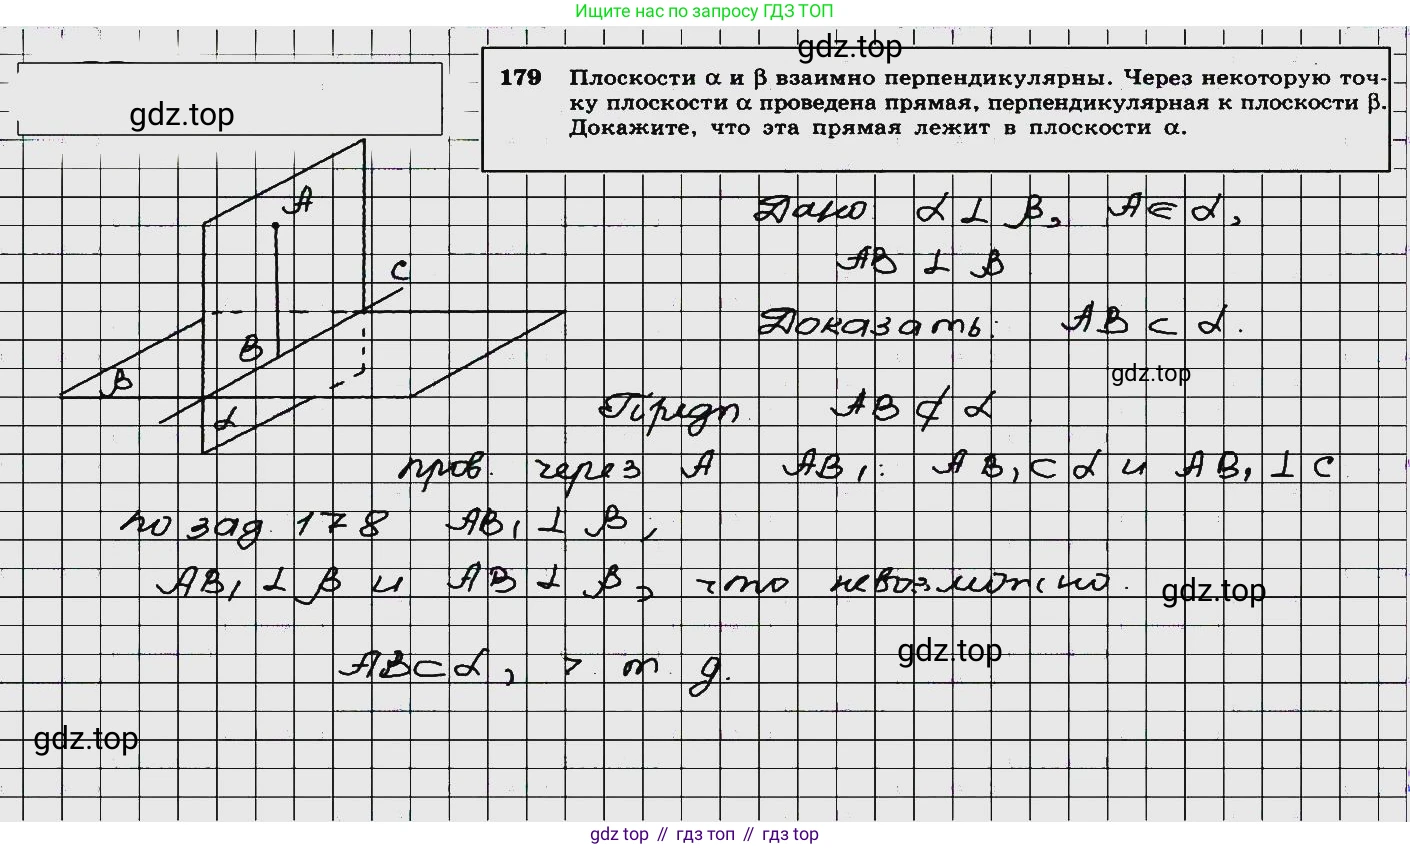 Ищите нас по запросу ГДЗ ТОП
gdz.top
gdz.top
179 Плоскости α и β взаимно перпендикулярны. Через некоторую точ-
ку плоскости α проведена прямая, перпендикулярная к плоскости β.
Докажите, что эта прямая лежит в плоскости α.
A
C
B
β
α
Дано α ⊥ β, A ∈ α,
AB ⊥ β
Доказать: AB ⊂ α.
gdz.top
Предп AB ⊄ α
пров. через A AB₁: AB₁ ⊂ α и AB₁ ⊥ C
по зад. 178 AB₁ ⊥ β,
AB₁ ⊥ β и AB ⊥ β, что невозможно.
gdz.top
gdz.top
AB ⊂ α, ч т д.
gdz.top
gdz top // гдз топ // гдз top